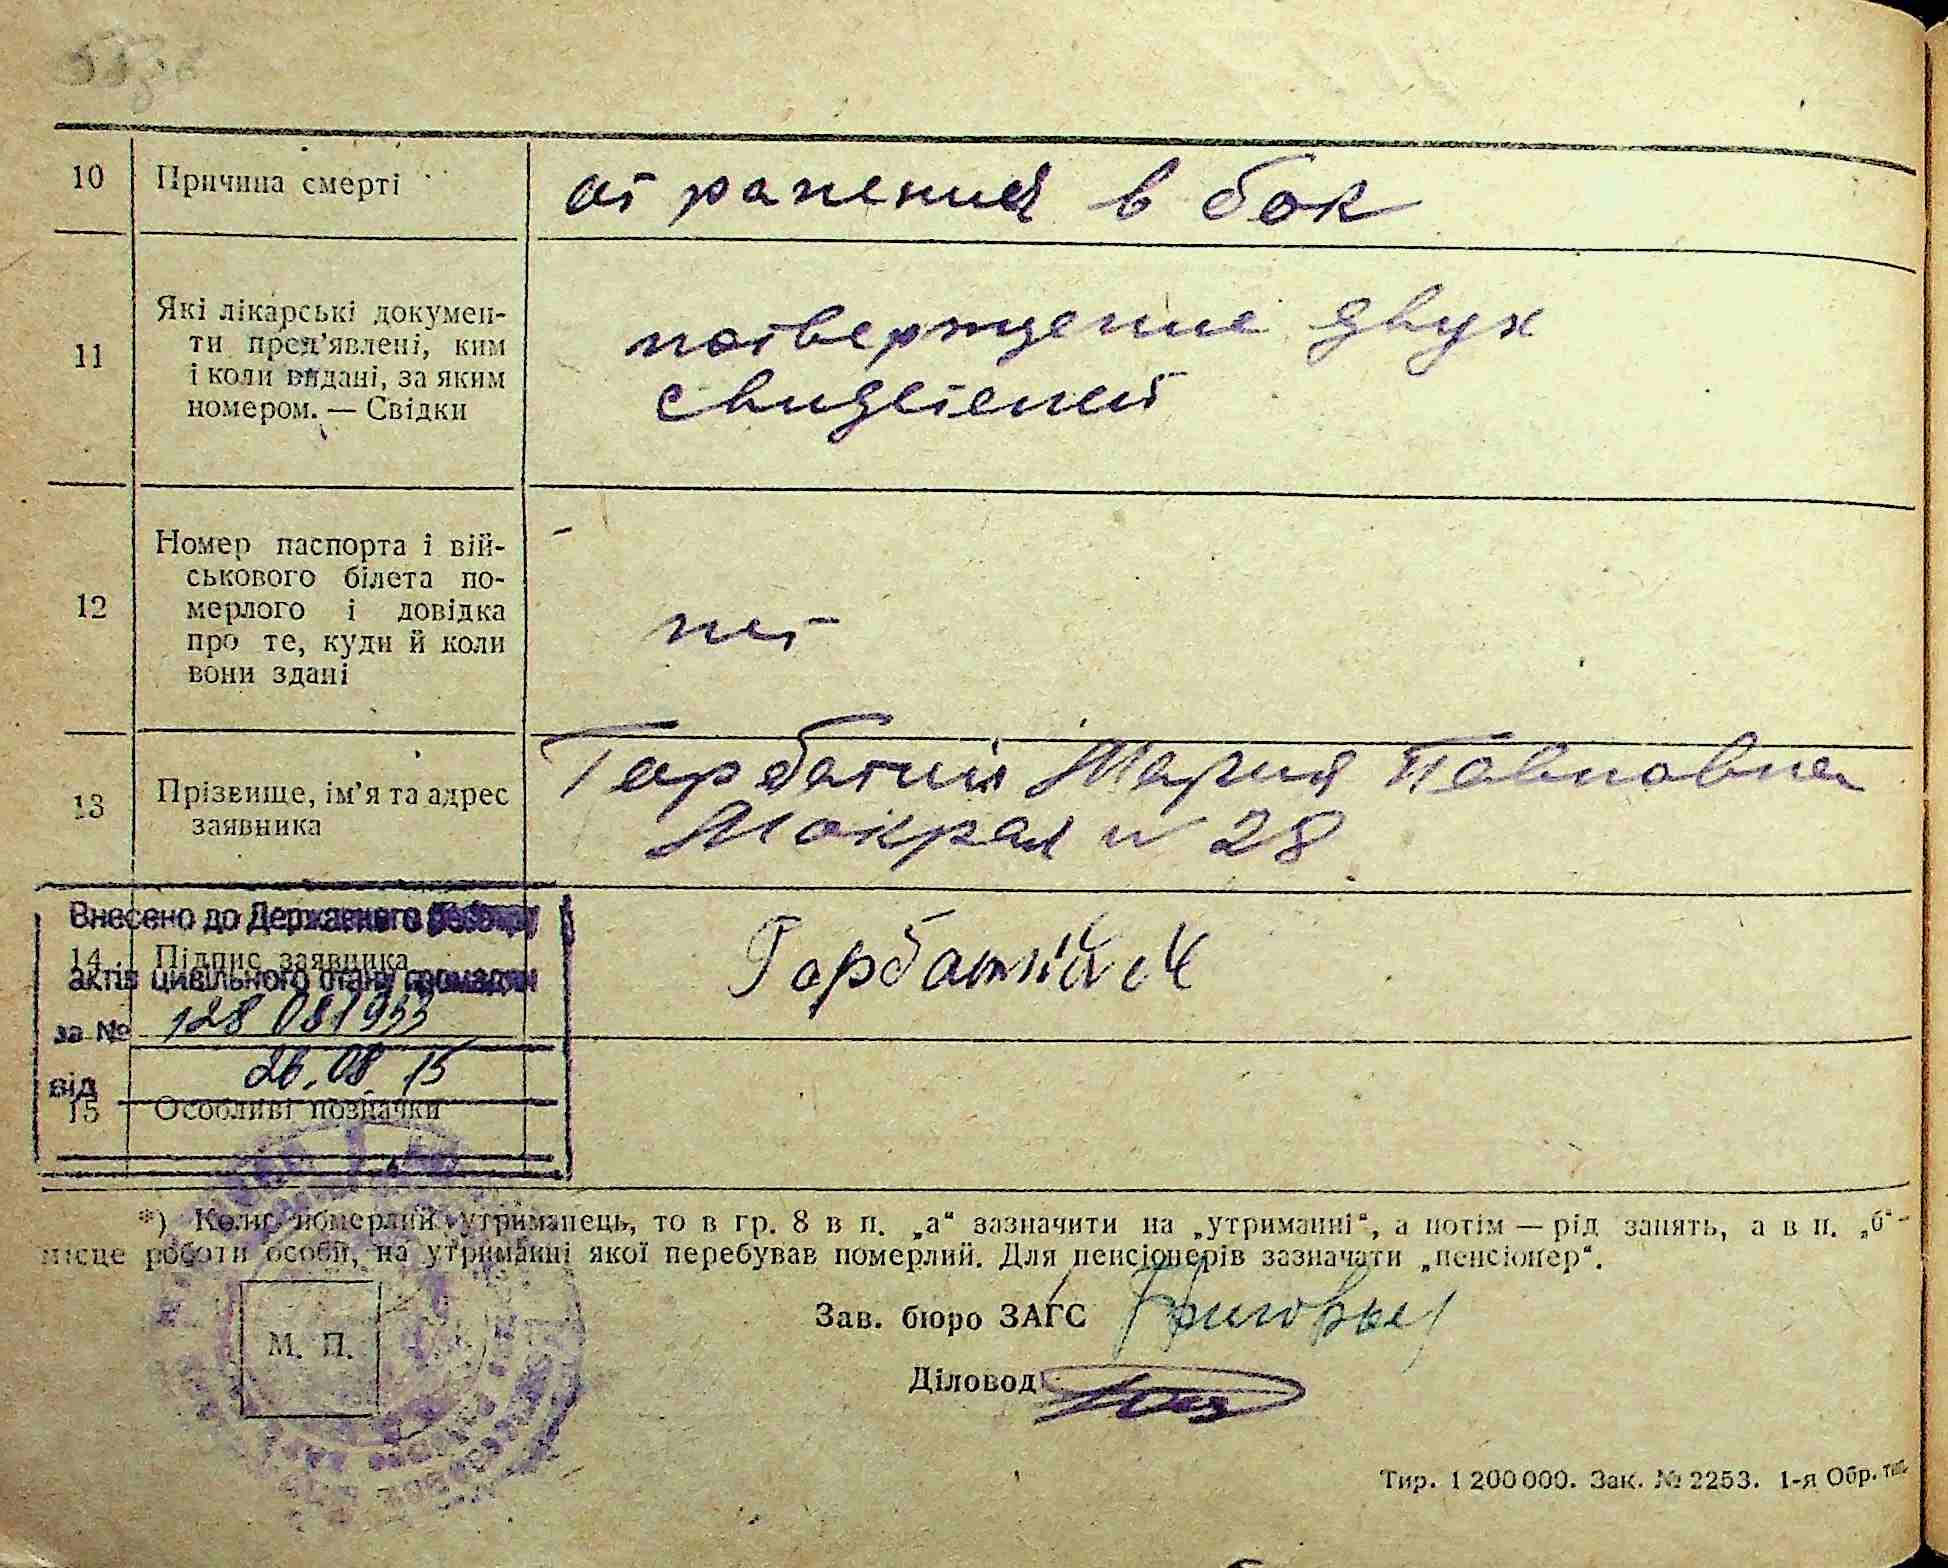 10
Причина смерті
от ранения в бок
11
Які лікарські докумен-
ти пред'явлені, ким
і коли видані, за яким
номером. — Свідки
потверждение двух
свидетелей
12
Номер паспорта і вій-
ськового білета по-
мерлого і довідка
про те, куди й коли
вони здані
нет
13
Прізвище, ім'я та адрес
заявника
Горбатий Мария Павловна
Мокрая № 28
Внесено до Державного реєстру
14
Підпис заявника
Горбатий М
актів цивільного стану громадян
за № 128 081933
від 26.08.15
15
Особливі позначки
*) Коли померлий утриманець, то в гр. 8 в п. „а“ зазначити на „утриманні“, а потім — рід занять, а в п. „б“ —
місце роботи особи, на утриманні якої перебував померлий. Для пенсіонерів зазначати „пенсіонер“.
М. П.
Зав. бюро ЗАГС
Діловод
Тир. 1 200 000. Зак. № 2253. 1-я Обр. тип.